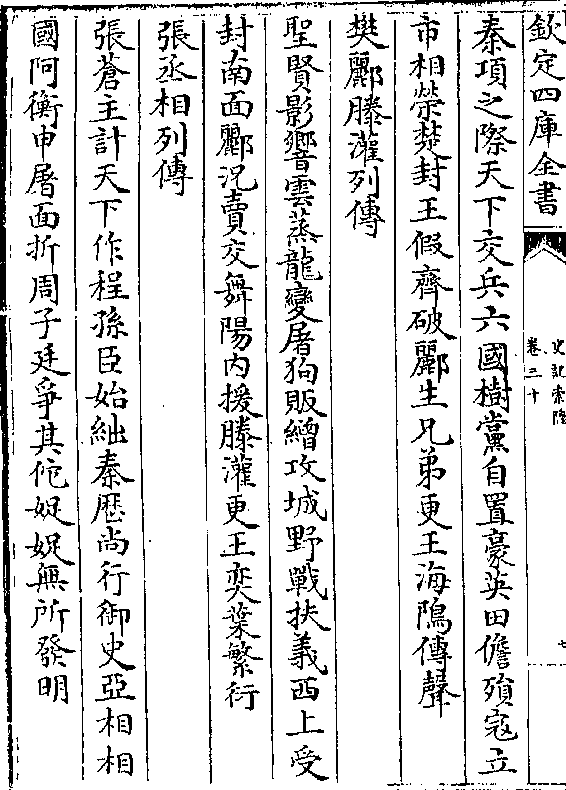 欽定四庫全書
史記索隱
卷三十
七
秦項之際天下交兵六國樹黨自置豪英田儋殞寇立
市相榮楚封王假齊破酈生兄弟更王海隝傳聲
樊酈滕灌列傳
聖賢影響雲蒸龍變屠狗販繒攻城野戰扶義西上受
封南面酈況賣交舞陽内援滕灌更王奕葉繁衍
張丞相列傳
張蒼主計天下作程孫臣始絀秦厯尚行御史亞相相
國阿衡申屠面折周子廷爭其佗娖娖無所發明